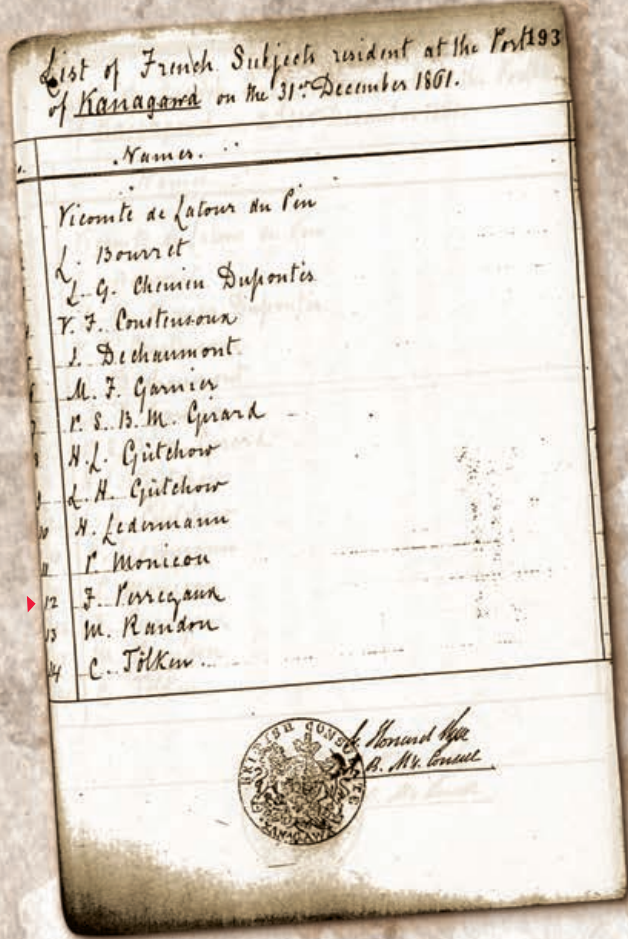 193
List of French Subjects resident at the Port
of Kanagawa on the 31st December 1861.
Names.
Vicomte de Latour du Pin
L. Bourret
L. G. Chemien Dupontis
V. F. Constensoux
J. Dechaumont
M. F. Garnier
P. S. B. M. Girard
H. L. Gütchow
L. H. Gütchow
10 H. Ledermann
11 P. Monicou
12 F. Perregaux
13 M. Randon
14 C. Tölken
Howard Vyse
B. M's. Consul
BRITISH CONSULATE
KANAGAWA